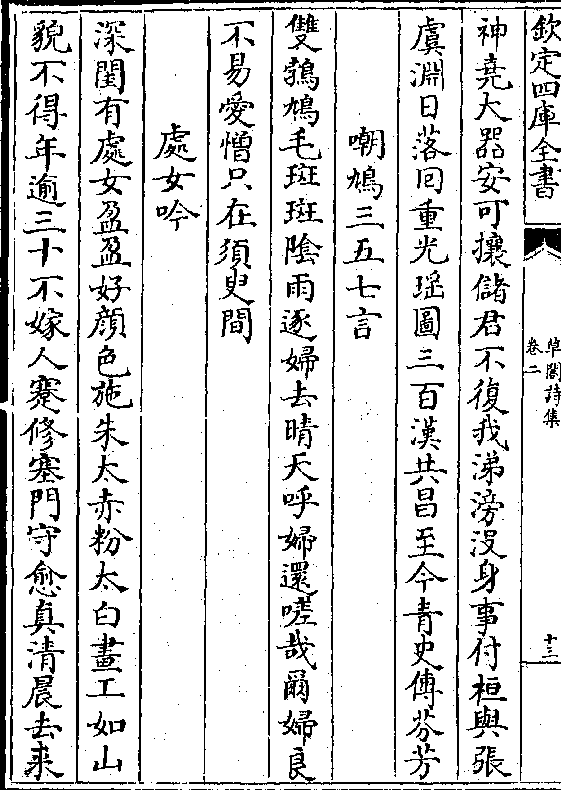 欽定四庫全書
卓閣詩集
卷二
十三
神堯大器安可攘儲君不復我涕滂没身事付桓與張
虞淵日落囘重光瑶圖三百漢共昌至今青史傳芬芳
嘲鳩三五七言
雙鵓鳩毛斑斑隂雨逐婦去晴天呼婦還嗟哉爾婦良
不易愛憎只在須臾間
處女吟
深閨有處女盈盈好顔色施朱太赤粉太白畫工如山
貌不得年逾三十不嫁人蹇修塞門守愈真清晨去來